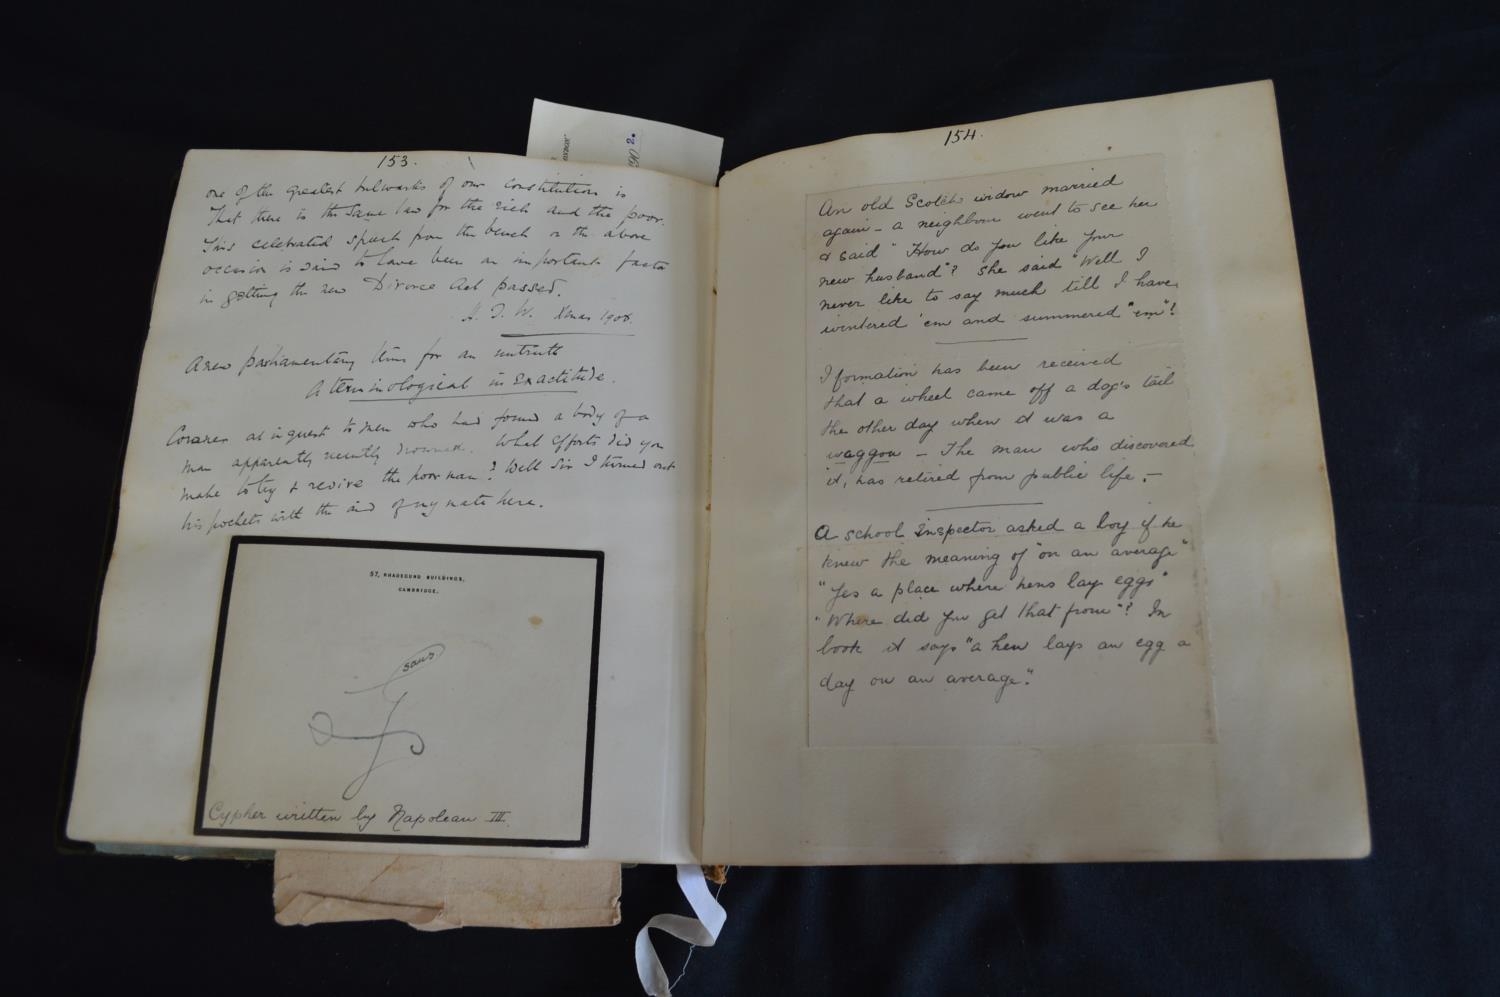 153.
one of the greatest bulwarks of our constitution is
that there is the same law for the rich and the poor.
This celebrated speech from the bench on the above
occasion is said to have been an important factor
in getting the new Divorce Act passed.
H. J. W. Xmas 1908.
A new parliamentary term for an untruth
A terminological in exactitude.
Coroner at inquest to men who had found a body of a
man apparently recently drowned. What efforts did you
make to try & revive the poor man? Well Sir I turned out
his pockets with the aid of my mate here.
57, RHADEGUND BUILDINGS,
CAMBRIDGE.
sans
Cypher written by Napolean III.
2.
154.
An old Scotch widow married
again - a neighbour went to see her
& said "How do you like your
new husband"? She said "Well I
never like to say much till I have
wintered 'em and summered "em"!
I formation has been received
that a wheel came off a dog's tail
the other day when it was a
waggon - The man who discovered
it, has retired from public life. -
A school Inspector asked a boy if he
knew the meaning of "on an average"
"Yes a place where hens lay eggs"
"Where did you get that from"? In
book it says "a hen lays an egg a
day on an average".